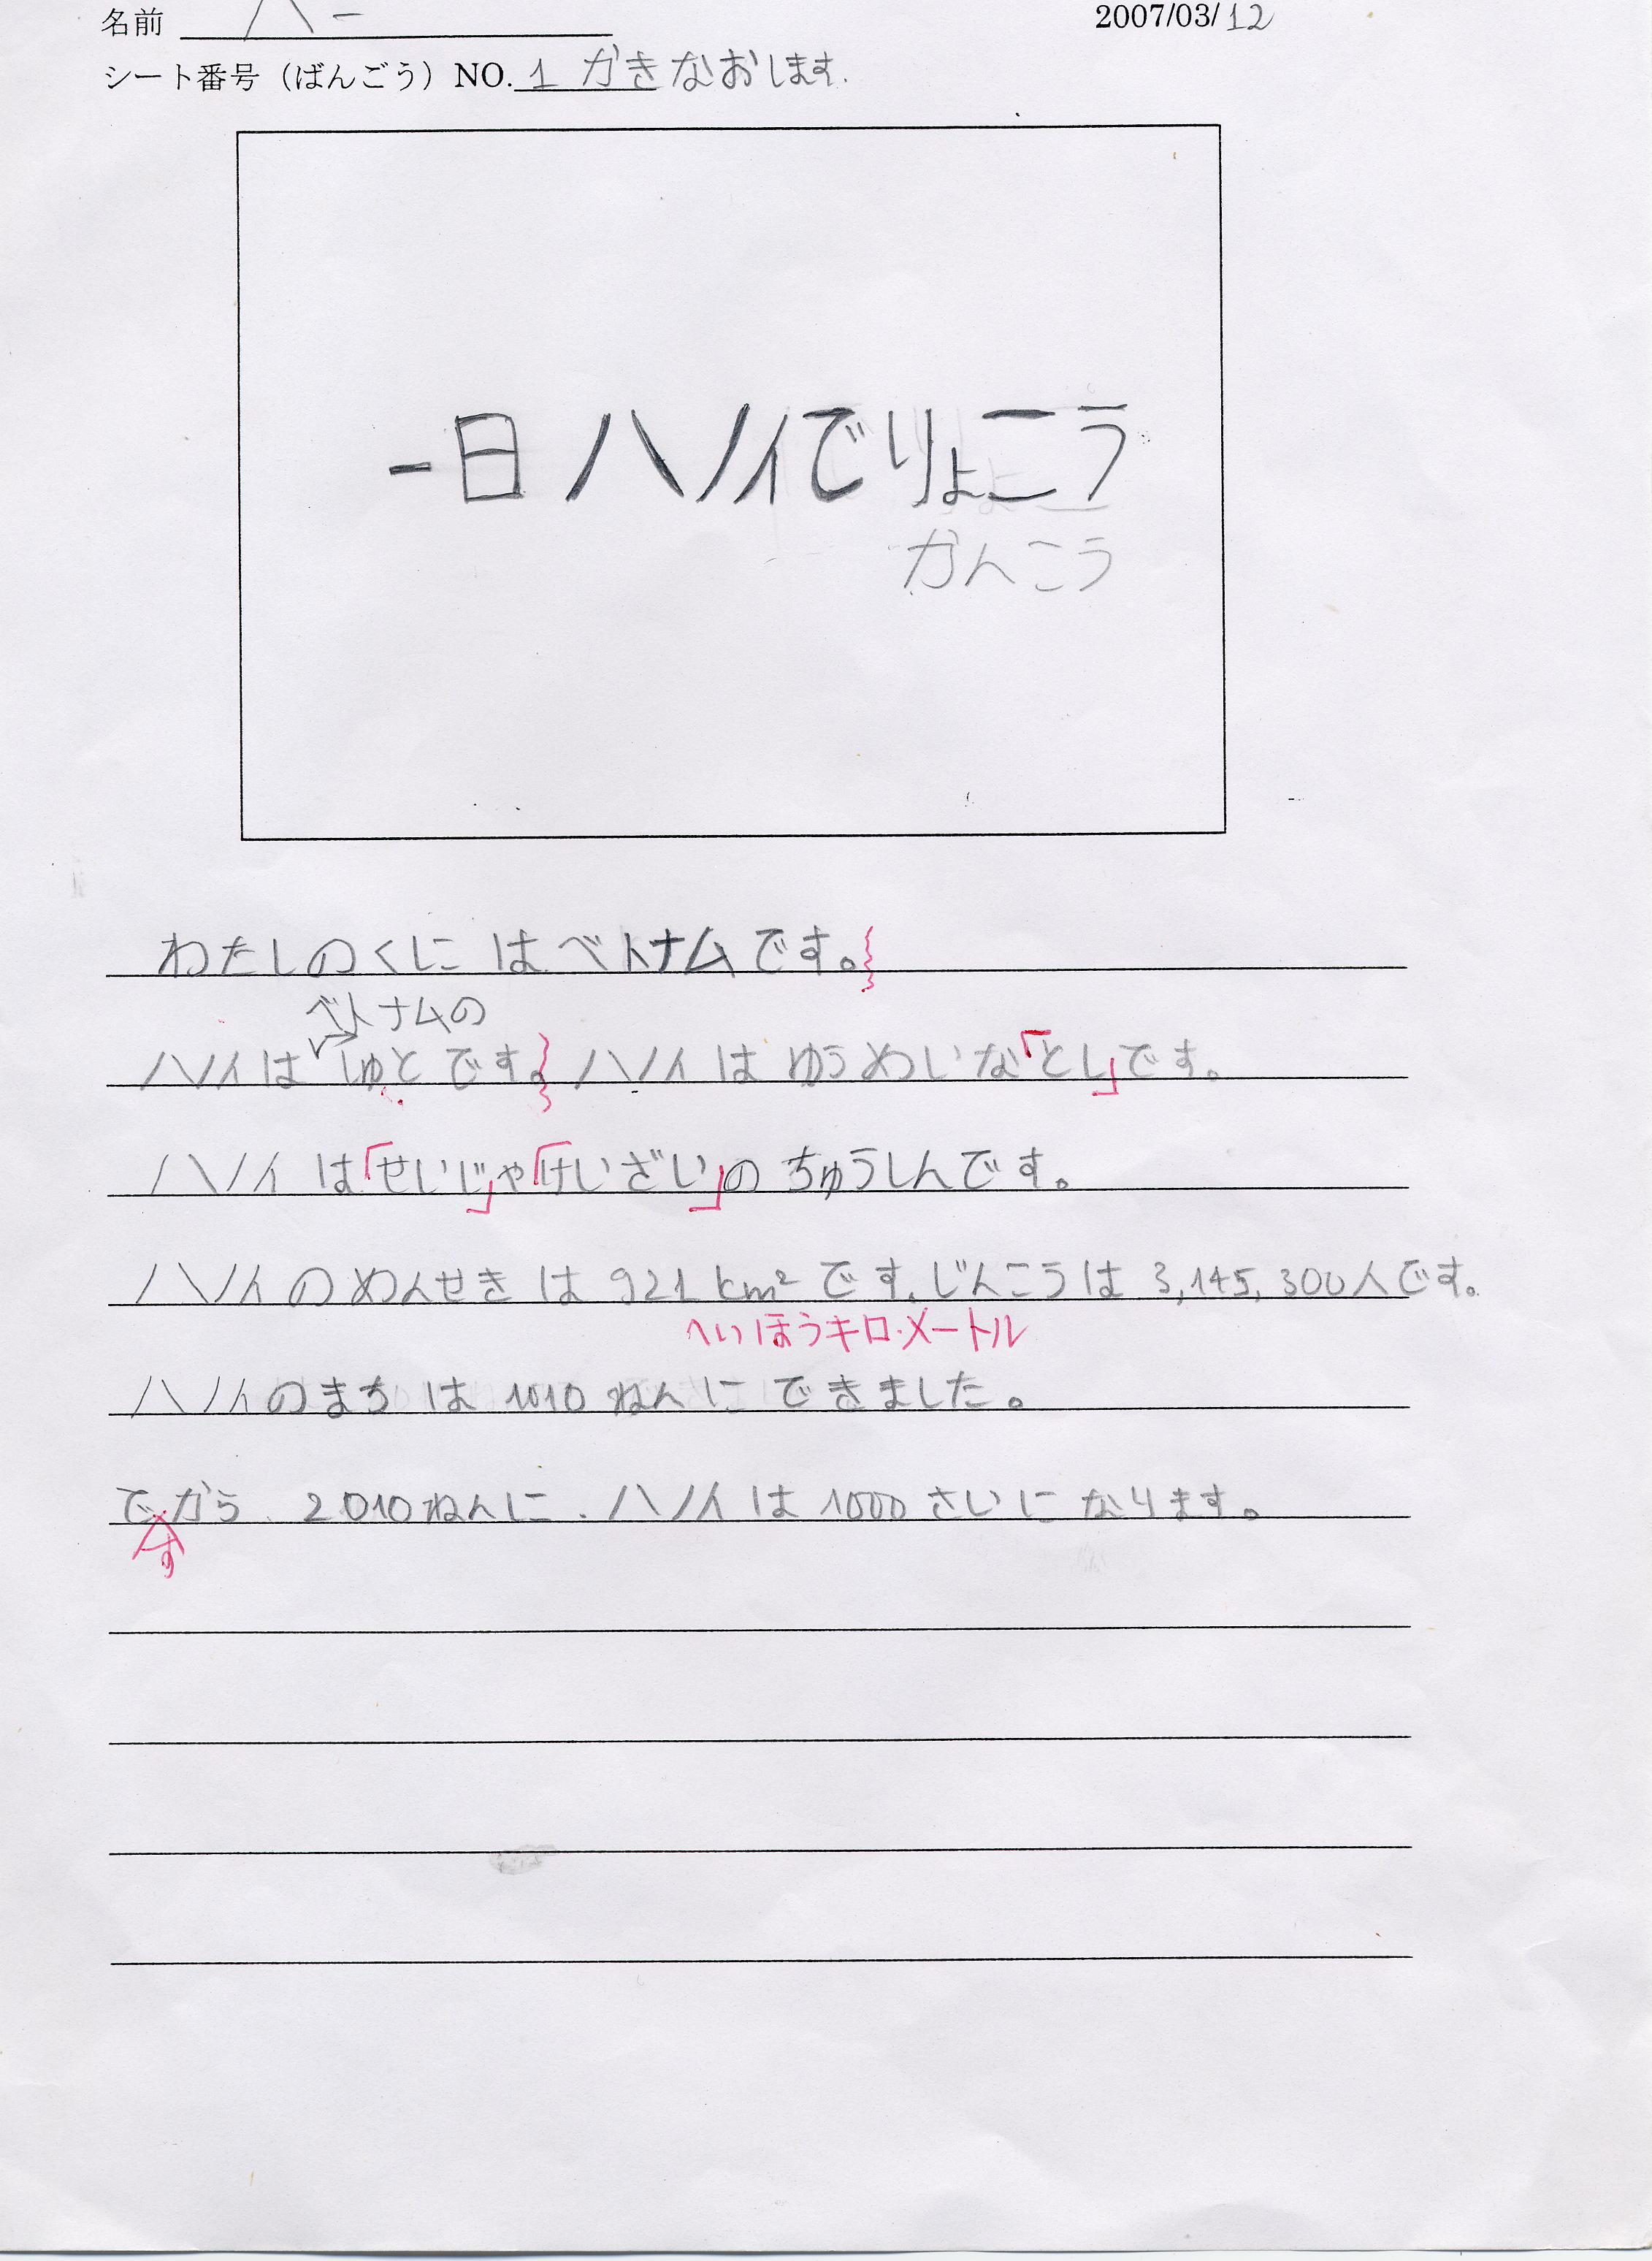 名前 ハー 2007/03/12
シート番号（ばんごう）NO. 1 かきなおします.
一日ハノイでりょこう
かんこう
わたしのくにはベトナムです。
ベトナムの
ハノイはしゅとです。ハノイはゆうめいな「とし」です。
ハノイは「せいじ」や「けいざい」のちゅうしんです。
ハノイのめんせきは921km²です.じんこうは3,145,300人です。
へいほうキロ・メートル
ハノイのまちは1010ねんにできました。
でから.2010ねんに.ハノイは1000さいになります。
す